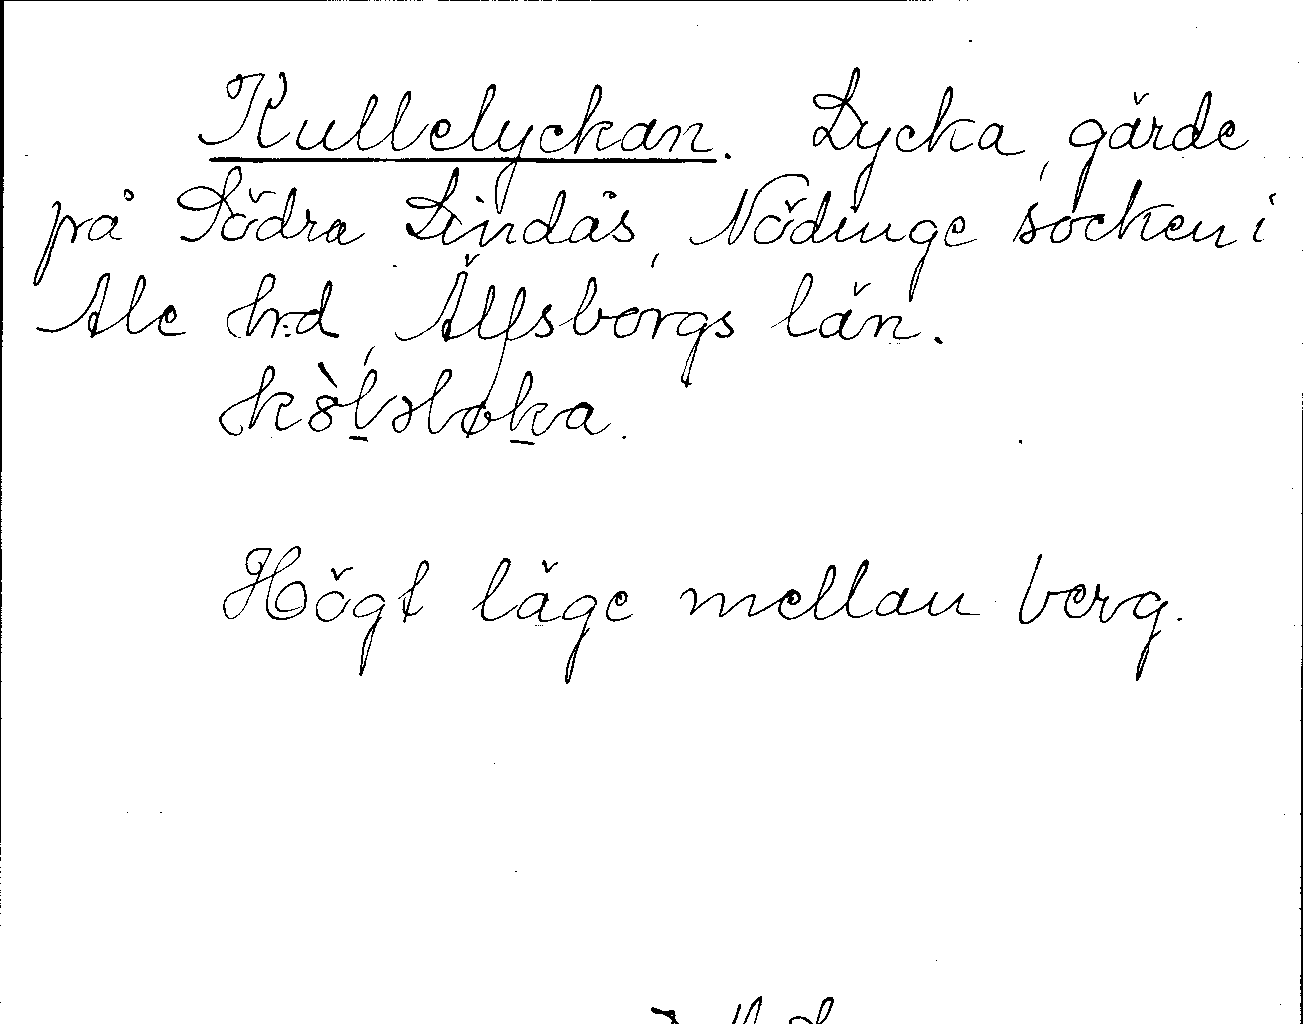 Kullelyckan. Lycka, gärde
på Södra Lindås, Nödinge socken i
Ale hrd, Älfsborgs län.
kòl̠əløk̠a.
Högt läge mellan berg.